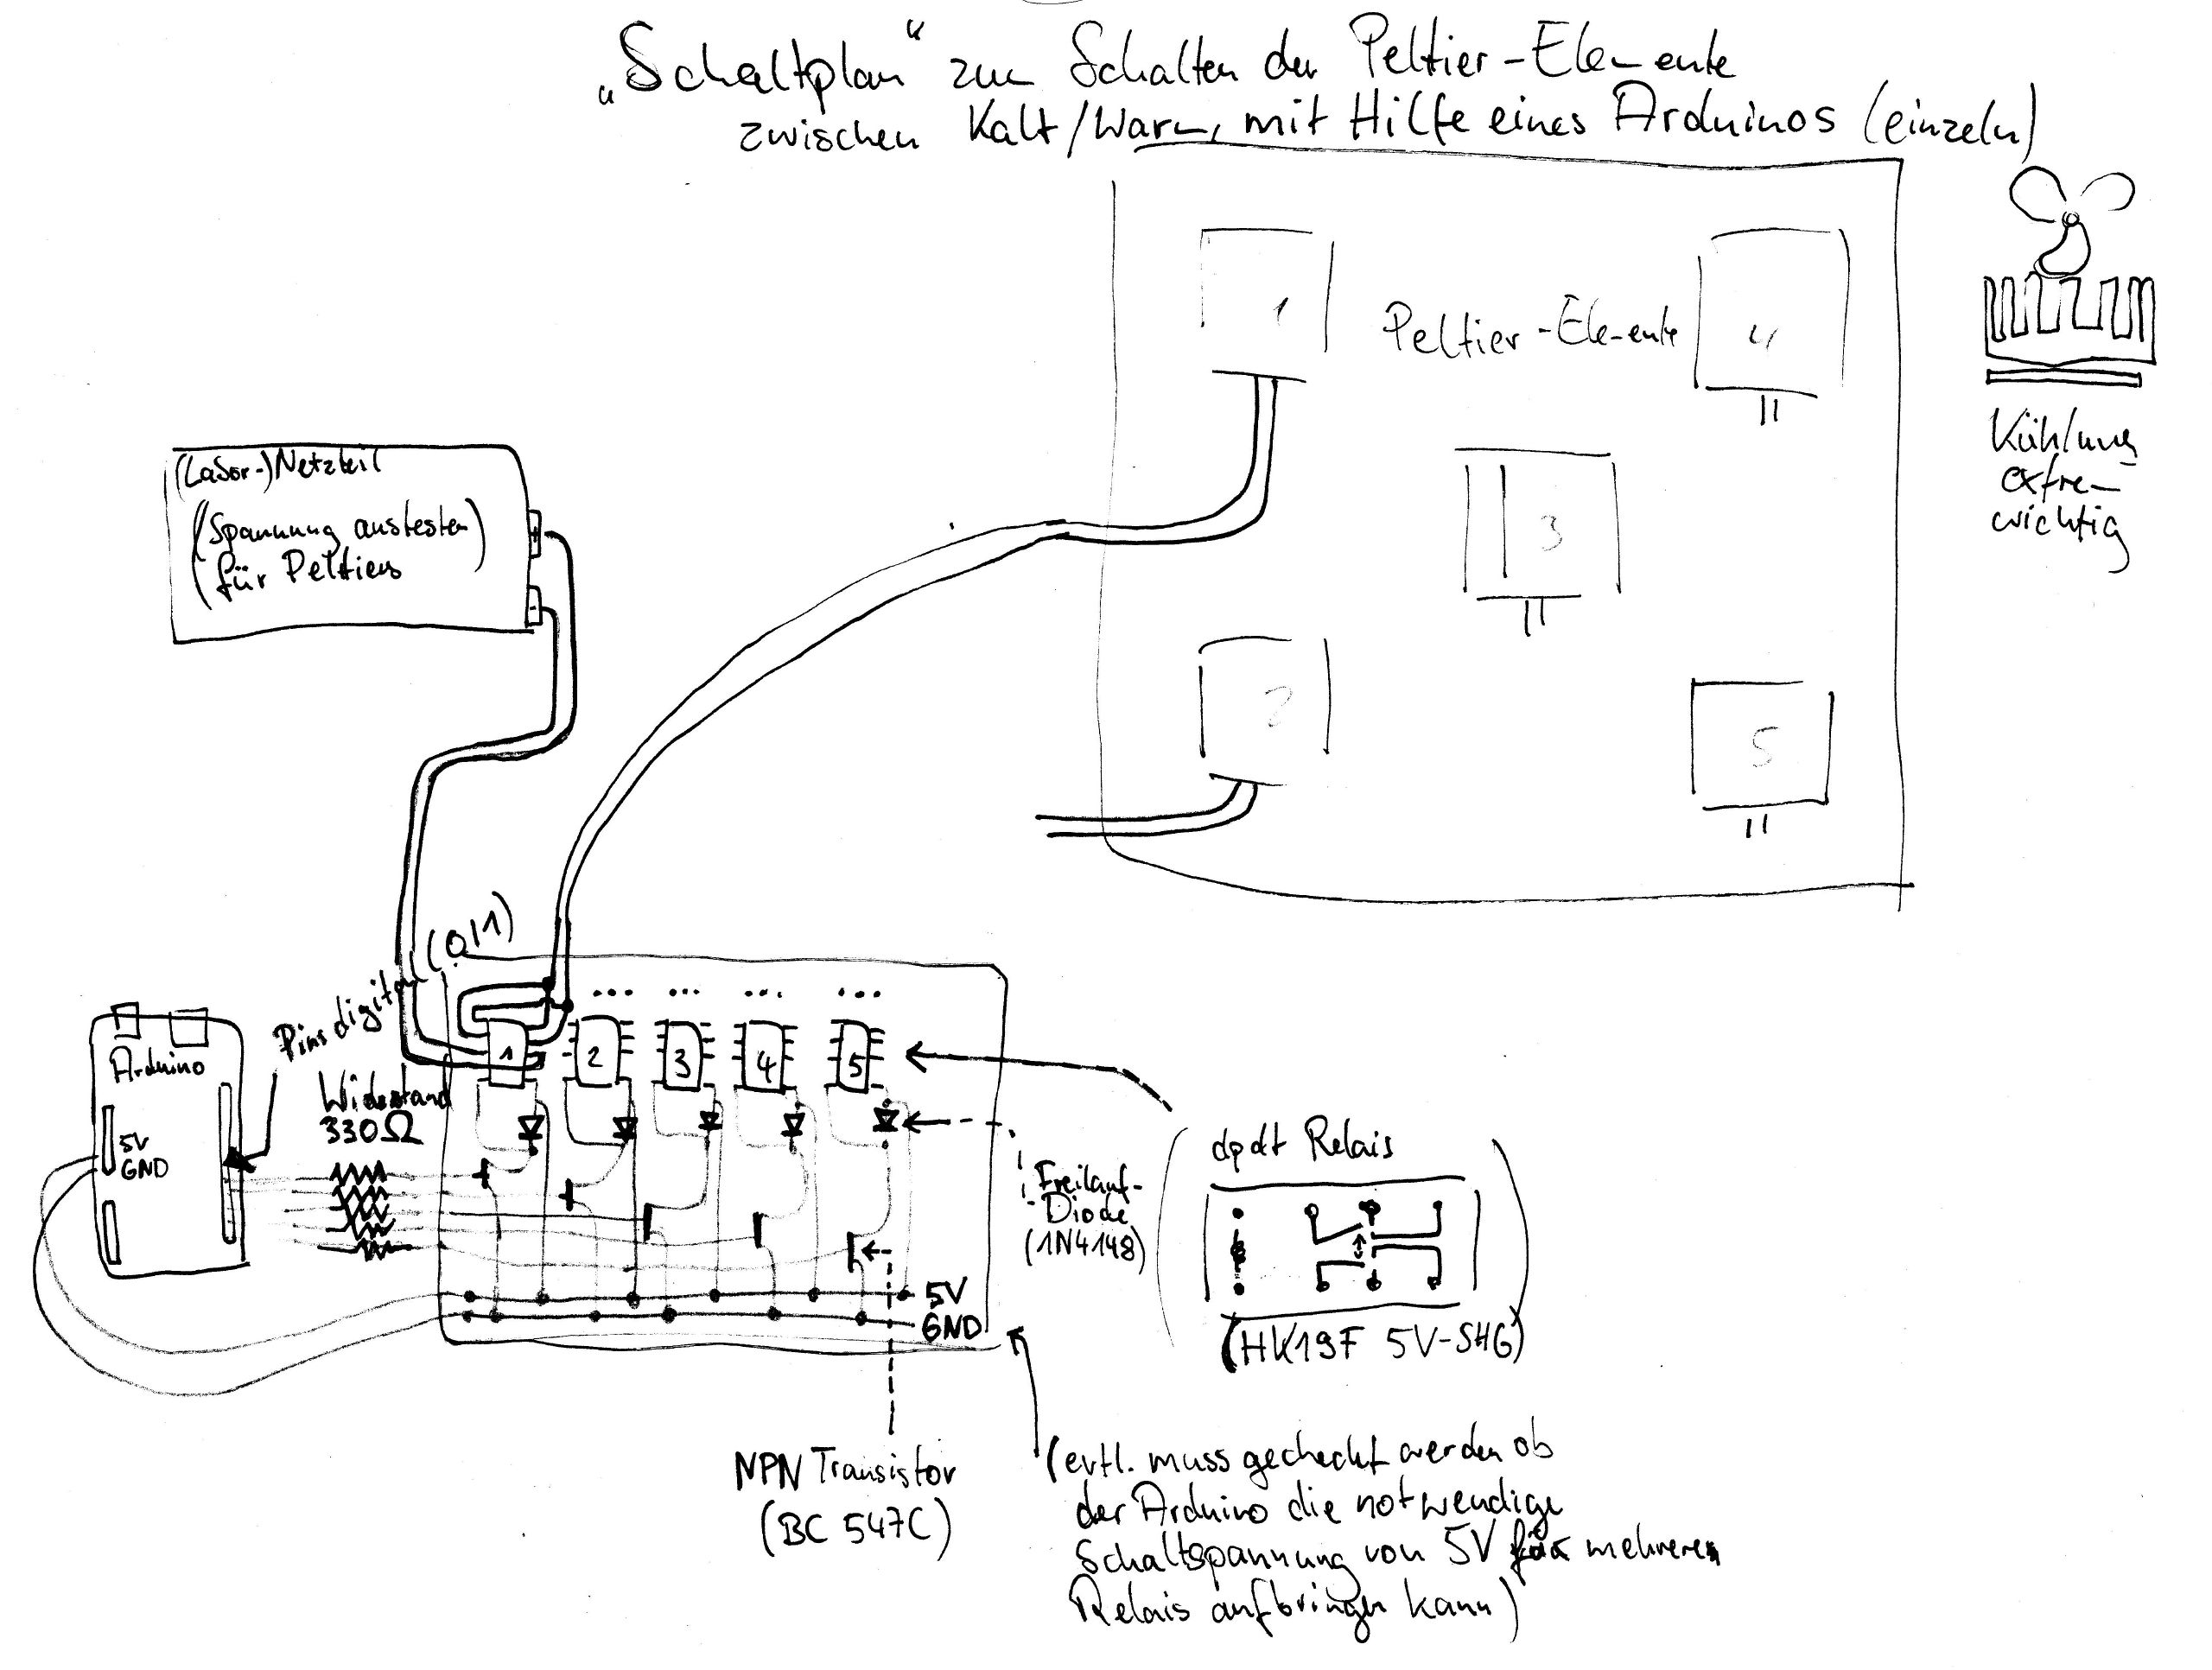 „Schaltplan“ zum Schalten der Peltier-Elemente
zwischen Kalt/Warm, mit Hilfe eines Arduinos (einzeln)
1
Peltier-Elemente
4
Kühlung
extrem
wichtig
3
2
5
(Labor-)Netzteil
(Spannung austesten)
(für Peltiers
+
-
Pins digital (0/1)
Arduino
5V
GND
Widerstand
330Ω
... ... ... ...
1 2 3 4 5
5V
GND
Freilauf-
-Diode
(1N4148)
dpdt Relais
(HK19F 5V-SHG)
NPN Transistor
(BC 547C)
(evtl. muss gecheckt werden ob
der Arduino die notwendige
Schaltspannung von 5V für mehrere
Relais aufbringen kann)